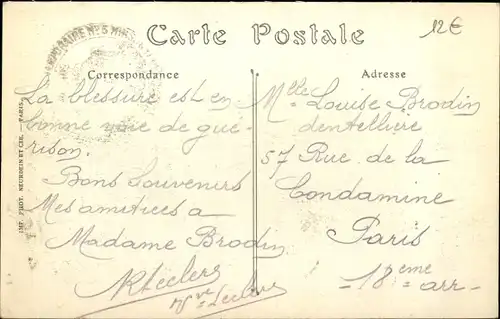 Carte Postale
12€
Correspondance
La blessure est en
bonne voie de gué-
rison.
Bons Souvenirs
Mes amitiées a
Madame Brodin
Leclerc
Leclerc
Adresse
Melle Louise Brodin
dentellière
57 Rue de la
Condamine
Paris
-18eme
arr-
IMP. PHOT. NEURDEIN ET CIE. - PARIS